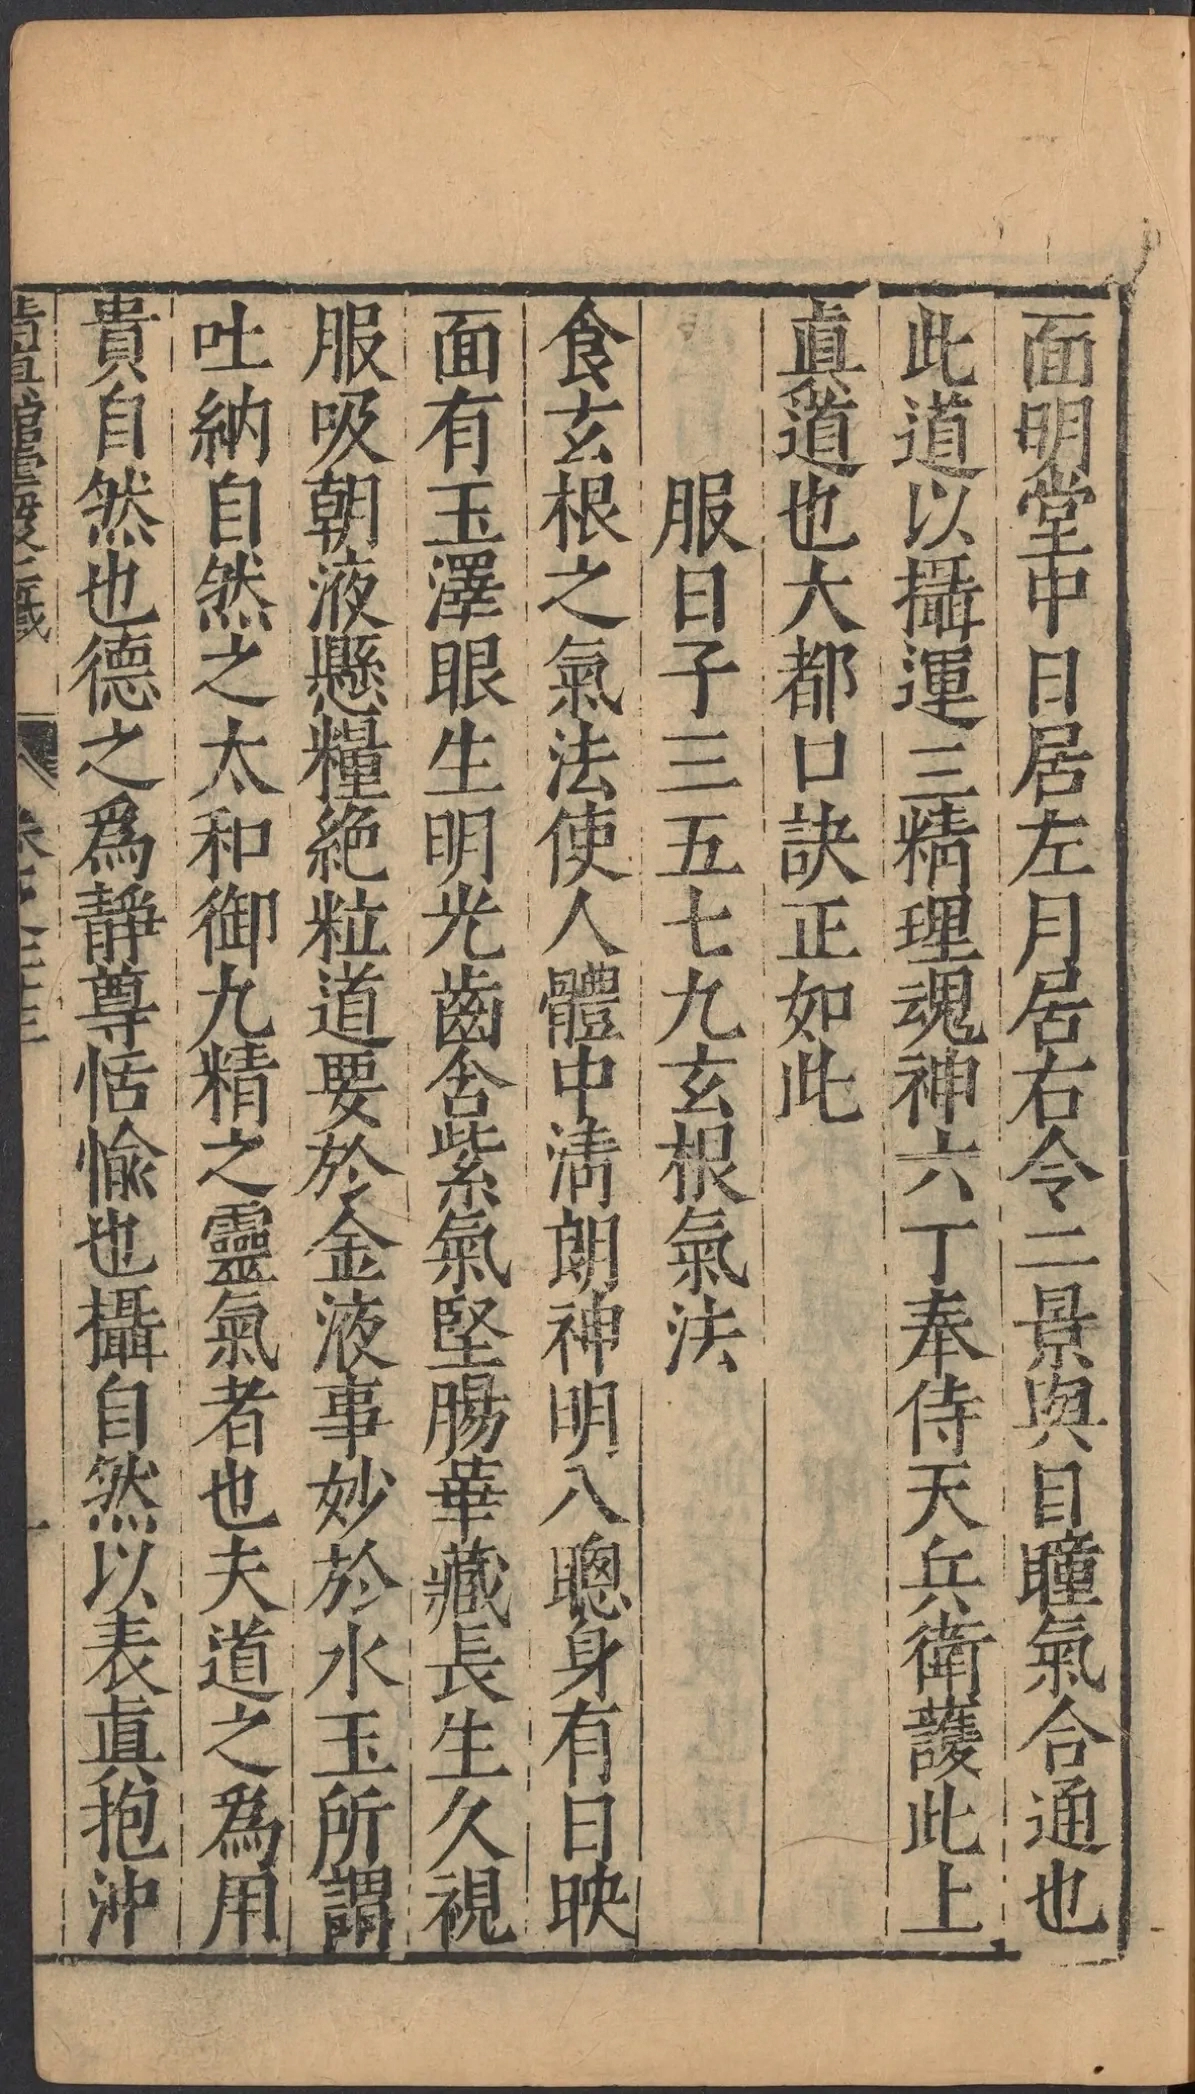 面明堂中日居左月居右令二景與目瞳氣合通也
此道以攝運三精理魂神六丁奉侍天兵衛護此上
眞道也大都口訣正如此
服日子三五七九玄根氣法
食玄根之氣法使人體中淸朗神明八聰身有日映
面有玉澤眼生明光齒含紫氣堅腸華藏長生久視
服吸朝液懸糧絶粒道要於金液事妙於水玉所謂
吐納自然之太和御九精之靈氣者也夫道之爲用
貴自然也德之爲靜尊恬愉也攝自然以表眞抱沖